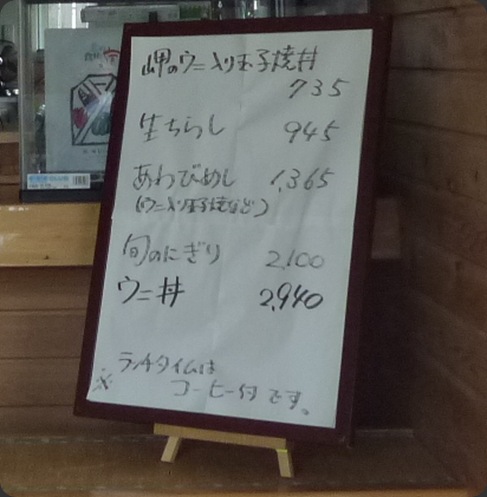 岬のウニ入り玉子焼丼
735
生ちらし 945
あわびめし 1,365
(ウニ入り玉子焼など)
旬のにぎり 2,100
ウニ丼 2,940
ランチタイムは
※ コーヒー付です。